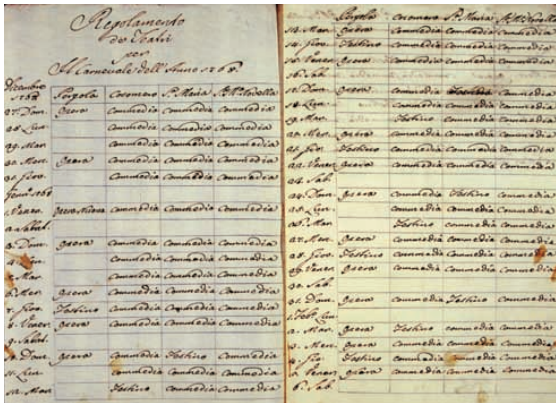 Regolamento
de Teatri
per
Il Carnevale dell'Anno 1768.
Dicembre
Pergola Cocomero S.ta Maria
27. Dom. Opera Commedia Commedia Commedia
28. Lun. Commedia Commedia Commedia
29. Mar. Commedia Commedia Commedia
30. Mer. Opera Commedia Commedia Commedia
31. Giov. Commedia Commedia Commedia
Genn.o 1768
1. Vener. Opera Nuova Commedia Commedia Commedia
2. Sabat.
3. Dom. Opera Commedia Commedia Commedia
Lun. Commedia Commedia Commedia
Mar. Commedia Commedia Commedia
6. Mer. Opera Commedia Commedia Commedia
7. Giov. Festino Commedia Commedia Commedia
8. Vener. Opera Commedia Commedia Commedia
9. Sabat.
Dom. Opera Commedia Festino Commedia
11. Lun. Commedia Commedia Commedia
12. Mar. Festino Commedia Commedia
Pergola Cocomero S.ta Maria
13. Mer. Opera Commedia Commedia Commedia
14. Gio. Festino Commedia Commedia Commedia
15. Vener. Opera Commedia Commedia Commedia
16. Sab.
17. Dom. Opera Commedia Festino Commedia
18. Lun. Commedia Commedia Commedia
19. Mar. Festino Commedia Commedia
20. Mer. Opera Commedia Commedia Commedia
21. Gio. Festino Commedia Commedia Commedia
22. Vener. Opera Commedia Commedia Commedia
23. Sab.
24. Dom. Opera Commedia Festino Commedia
25. Lun. Commedia Commedia Commedia
26. Mar. Festino Commedia Commedia
27. Mer. Opera Commedia Commedia Commedia
28. Gio. Festino Commedia Commedia Commedia
29. Vener. Opera Commedia Commedia Commedia
30. Sab.
31. Dom. Opera Commedia Festino Commedia
1. Feb. Lun. Commedia Commedia Commedia
2. Mar. Opera Festino Commedia Commedia
3. Mer. Opera Commedia Commedia Commedia
Gio. Festino Commedia Commedia Commedia
Vener. Opera Commedia Commedia Commedia
6. Sab.